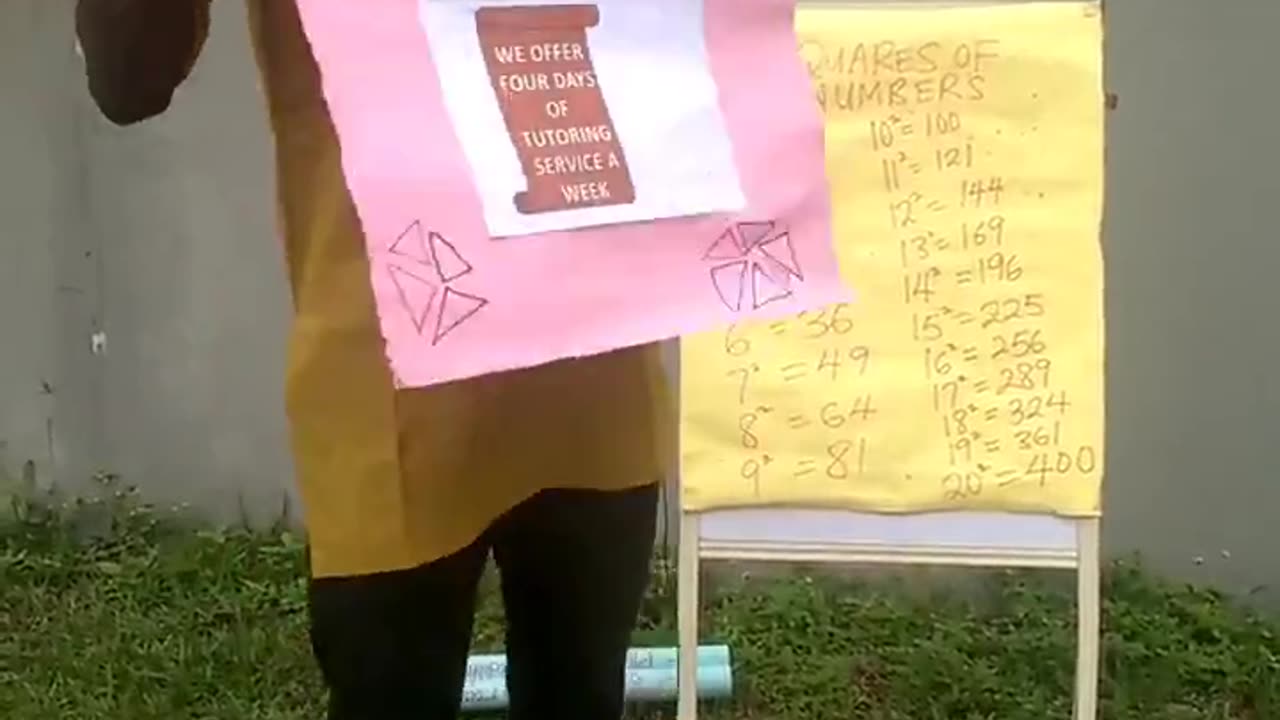 WE OFFER
FOUR DAYS
OF
TUTORING
SERVICE A
WEEK
QUARES OF
NUMBERS
6² = 36
7² = 49
8² = 64
9² = 81
10² = 100
11² = 121
12² = 144
13² = 169
14² = 196
15² = 225
16² = 256
17² = 289
18² = 324
19² = 361
20² = 400